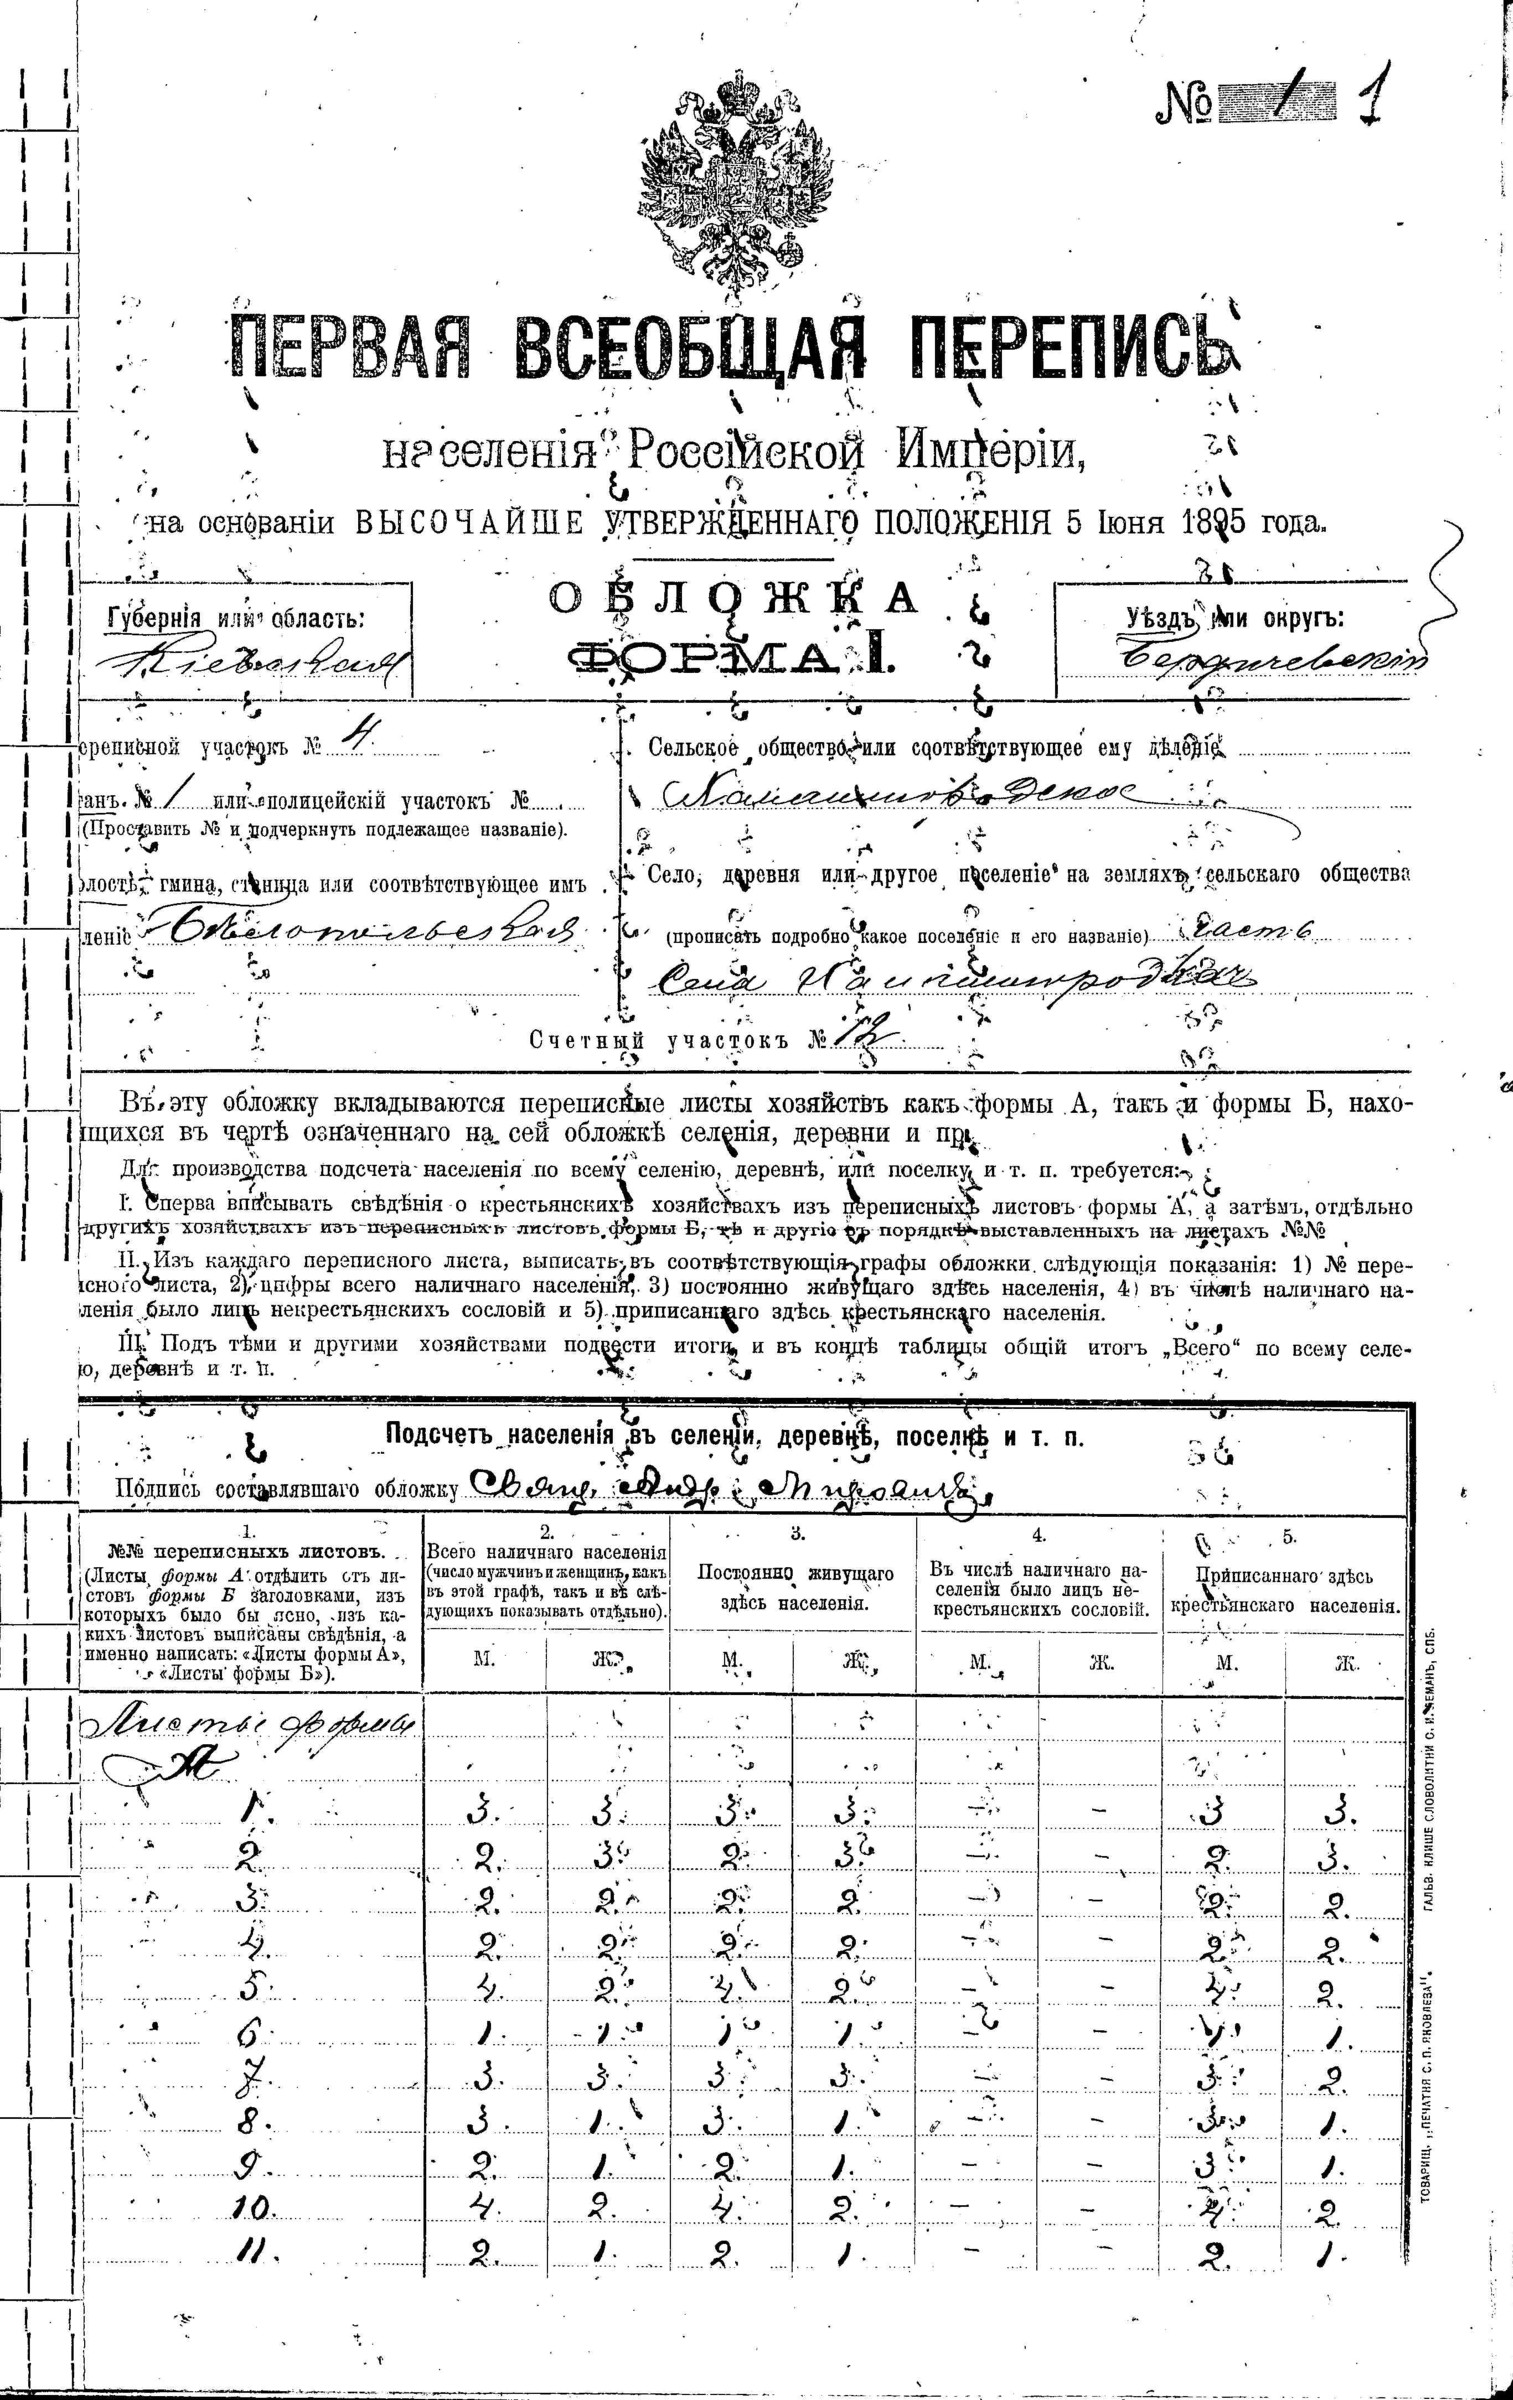 № 1 1
ПЕРВАЯ ВСЕОБЩАЯ ПЕРЕПИСЬ
населенія Россійской Имперіи,
на основаніи ВЫСОЧАЙШЕ УТВЕРЖДЕННАГО ПОЛОЖЕНІЯ 5 Іюня 1895 года.
ОБЛОЖКА
ФОРМА I.
Губернія или область:
Кіевская
Уѣздъ или округъ:
Бердичевскій
ереписной участокъ № 4.
танъ. № 1 или полицейскій участокъ №
(Проставить № и подчеркнуть подлежащее названіе).
олость, гмина, станица или соотвѣтствующее имъ
леніе Бѣлопольская
Сельское общество или соотвѣтствующее ему дѣленіе
Село, деревня или другое поселеніе на земляхъ сельскаго общества
(прописать подробно какое поселеніе и его названіе) Часть
Села
Счетный участокъ № 12.
Въ эту обложку вкладываются переписные листы хозяйствъ какъ формы А, такъ и формы Б, нахо-
ящихся въ чертѣ означеннаго на сей обложкѣ селенія, деревни и пр.
Для производства подсчета населенія по всему селенію, деревнѣ, или поселку и т. п. требуется:
I. Сперва вписывать свѣдѣнія о крестьянскихъ хозяйствахъ изъ переписныхъ листовъ формы А, а затѣмъ, отдѣльно
другихъ хозяйствахъ изъ переписныхъ листовъ формы Б, тѣ и другіе въ порядкѣ выставленныхъ на листахъ №№
II. Изъ каждаго переписного листа, выписать въ соотвѣтствующія графы обложки слѣдующія показанія: 1) № пере-
исного листа, 2) цифры всего наличнаго населенія, 3) постоянно живущаго здѣсь населенія, 4) въ числѣ наличнаго на-
ленія было лицъ некрестьянскихъ сословій и 5) приписаннаго здѣсь крестьянскаго населенія.
III. Подъ тѣми и другими хозяйствами подвести итоги и въ концѣ таблицы общій итогъ „Всего“ по всему селе-
ю, деревнѣ и т. п.
Подсчетъ населенія въ селеніи, деревнѣ, поселкѣ и т. п.
Подпись составлявшаго обложку Свящ.
1.
№№ переписныхъ листовъ.
(Листы формы А отдѣлить отъ ли-
стовъ формы Б заголовками, изъ
которыхъ было бы ясно, изъ ка-
кихъ листовъ выписаны свѣдѣнія, а
именно написать: «Листы формы А»,
«Листы формы Б»).
2.
Всего наличнаго населенія
(число мужчинъ и женщинъ, какъ
въ этой графѣ, такъ и въ слѣ-
дующихъ показывать отдѣльно).
3.
Постоянно живущаго
здѣсь населенія.
4.
Въ числѣ наличнаго на-
селенія было лицъ не-
крестьянскихъ сословій.
5.
Приписаннаго здѣсь
крестьянскаго населенія.
М. Ж. М. Ж. М. Ж. М. Ж.
Листы формы
А
1. 3. 3. 3. 3. — — 3 3.
2. 2. 3. 2. 3. — — 2. 3.
3. 2. 2. 2. 2. — — 2. 2.
4. 2. 2. 2. 2. — — 2. 2.
5. 4. 2. 4. 2. — — 4. 2.
6. 1. 1. 1. 1. — — 1. 1.
7. 3. 3. 3. 3. — — 3. 2.
8. 3. 1. 3. 1. — — 3. 1.
9. 2. 1. 2. 1. — — 3. 1.
10. 4. 2. 4. 2. — — 4. 2.
11. 2. 1. 2. 1. — — 2. 1.
ТОВАРИЩ. „ПЕЧАТНЯ С. П. ЯКОВЛЕВА“.